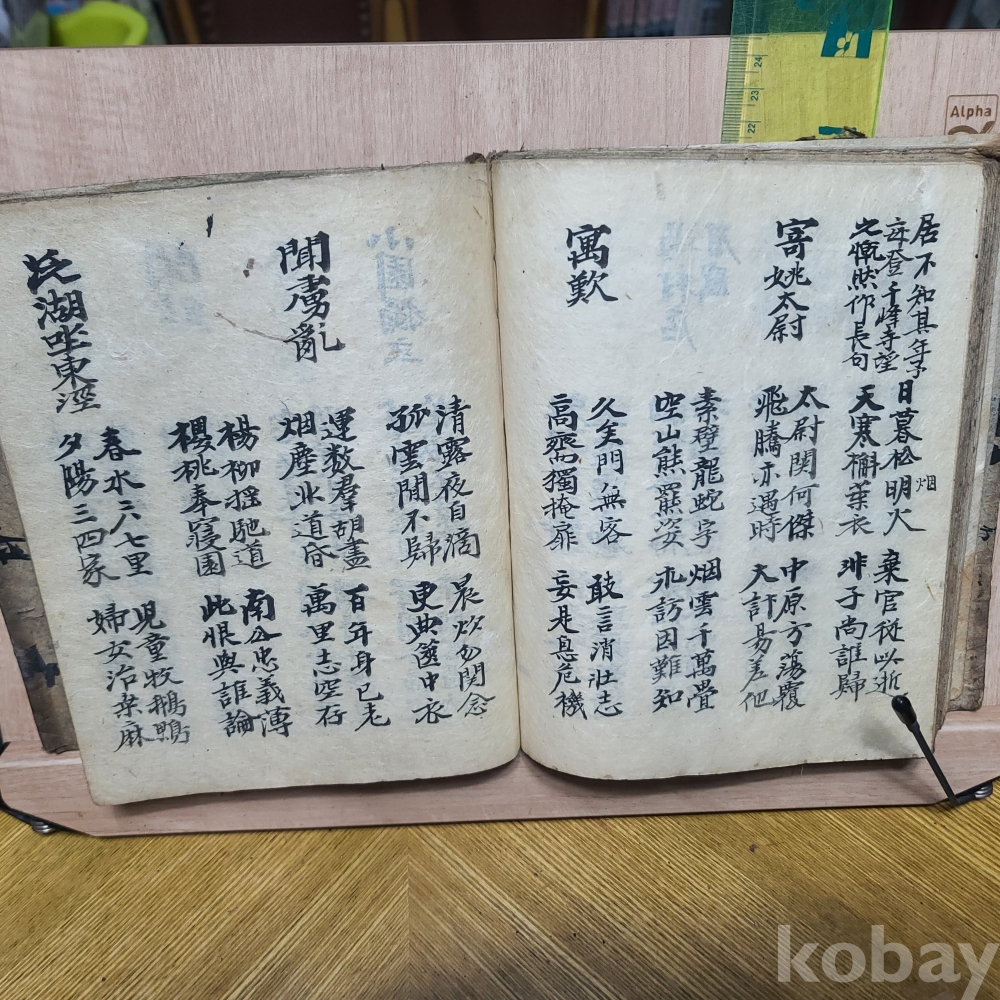 Alpha
24
23
22
居不知其年予
毎登千峰寺望
之慨然作長句
日暮松明火 棄官從此逝
烟
天寒槲葉衣 非子尚誰歸
寄姚太尉
太尉関何傑 中原方蕩覆
飛騰亦遇時 大計易差他
素壁龍蛇字 烟雲千萬疊
空山熊羆姿 求訪因難知
寓歎
久矣門無客 敢言消壯志
高齋獨掩扉 妄是息危機
清露夜自滴 晨炊勿関念
孤雲閒不歸 更典篋中衣
聞虜亂
運数羣胡盡 百年身已老
烟塵北道昏 萬里志空存
楊柳揺馳道 南公忠義薄
櫻桃奉寢園 此恨與誰論
泛湖至東涇
春水六七里 児童牧鵝鴨
夕陽三四家 婦女治桑麻
kobay